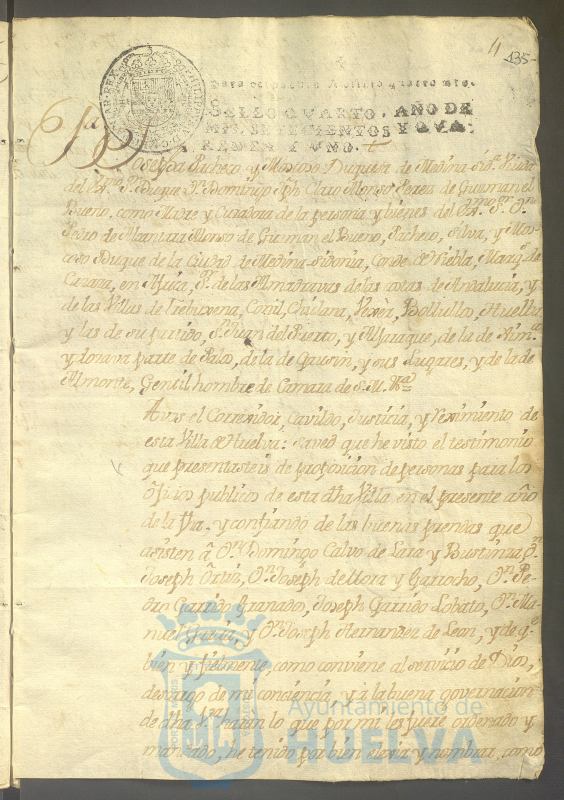 4
135
SELLO QVARTO, AÑO DE
MIL SETECIENTOS Y QVA
RENTA Y VNO.
Josepha Pacheco y Moscoso Duquesa de Medina Sida. Viuda
del Exmo. Sr. Duque Dn. Domingo Jph Claro Alonso Perez de Guzman el
Bueno, como Madre y Curadora de la persona, y bienes del Exmo. Sr. Dn.
Pedro de Alcantara Alonso de Guzman el Bueno, Pacheco, Silva, y Mos-
coso Duque de la Ciudad de Medina-Sidonia, Conde de Niebla, Marqs. de
Cazaza, en Africa, Sr. de las Almadravas de las costas de Andalucia, y
de las Villas de Trebuxena, Conil, Chiclana, Vexèr, Bollullos, Huelba
y las de su partido, Sn. Juan del Puerto, y Aljaraque, de la de
y dozava parte de Palos, de la de Gausin, y sus Lugares, y de la de
Almonte, Gentil hombre de Camara de S. M.
A vos el Correxidor, Cavildo, Justicia, y Reximiento de
esta Villa de Huelva: saved que he visto el testimonio
que presentasteis de proposicion de personas para los
Oficios publicos de esta dha Villa en el presente año
de la fha. y confiando de las buenas prendas que
asisten â Dn. Domingo Calvo de Lara y Bustinza, Dn.
Joseph Ortiz, Dn. Joseph de Mora y Garrocho, Dn. Pe-
dro Garrido Granados, Joseph Garrido Lobato, Dn. Ma-
nuel Garcia, y Dn. Joseph Hernandez de Lean, y de qe.
bien y fielmente, como conviene al servicio de Dios,
descargo de mi conciencia, y à la buena governacion
de dha Va. haran lo que por mi les fuere ordenado y
mandado, he tenido por bien elexir y nombrar, como
Ayuntamiento de
HUELVA